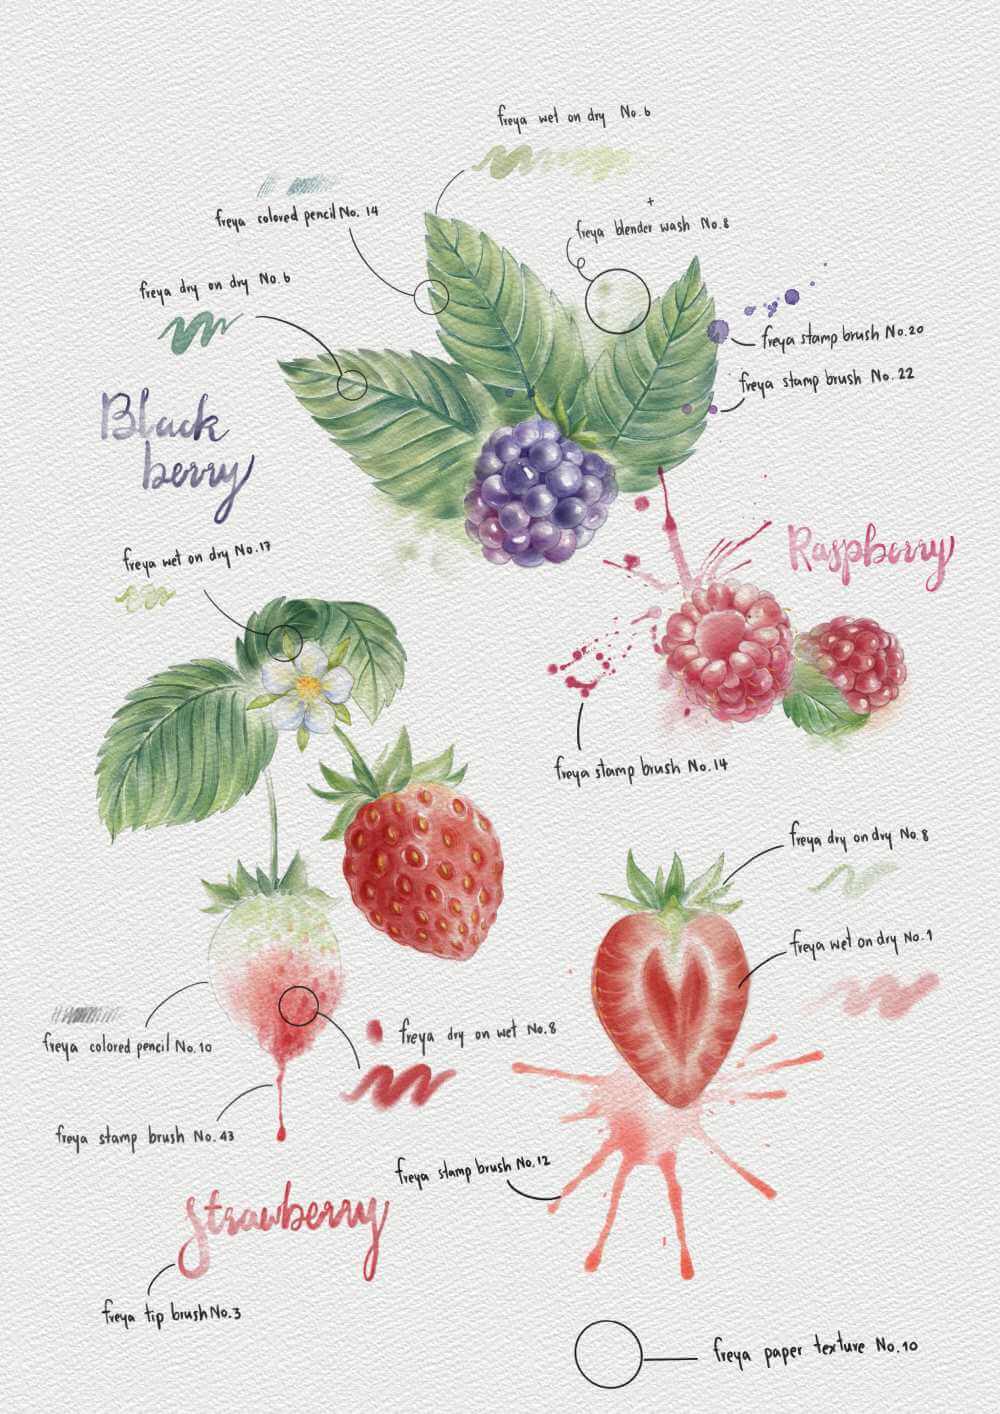 freya wet on dry No.6
freya colored pencil No. 14
+
freya blender wash No.8
freya dry on dry No.6
freya stamp brush No.20
freya stamp brush No.22
Black
berry
freya wet on dry No.17
Raspberry
freya stamp brush No.14
freya dry on dry No.8
freya wet on dry No.1
freya colored pencil No.10
freya dry on wet No.8
freya stamp brush No.43
freya stamp brush No.12
Strawberry
freya tip brush No.3
freya paper texture No.10